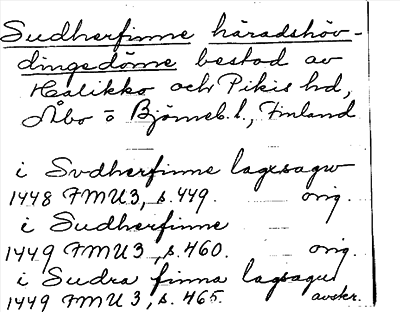 Sudherfinne häradshöv-
dingedöme bestod av
Halikko och Pikis hd,
Åbo o Björneb. l., Finland
i Svdherfinne lagesagw
1448 FMU 3, s. 449. orig.
i Sudherfinne
1449 FMU 3, s. 460. orig.
i Sudra finna lagsagu
1449 FMU 3, s. 465. avskr.